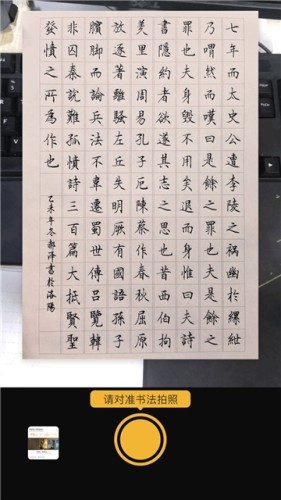 七年而太史公遭李陵之禍幽於縲紲
乃喟然而嘆曰是餘之罪也夫是餘之
罪也夫身毀不用矣退而深惟曰夫詩
書隱約者欲遂其志之思也昔西伯拘
羑里演周易孔子厄陳蔡作春秋屈原
放逐著離騷左丘失明厥有國語孫子
臏脚而論兵法不韋遷蜀世傳呂覽韓
非囚秦說難孤憤詩三百篇大抵賢聖
發憤之所為作也
乙未年冬郝洋書於洛陽
请对准书法拍照